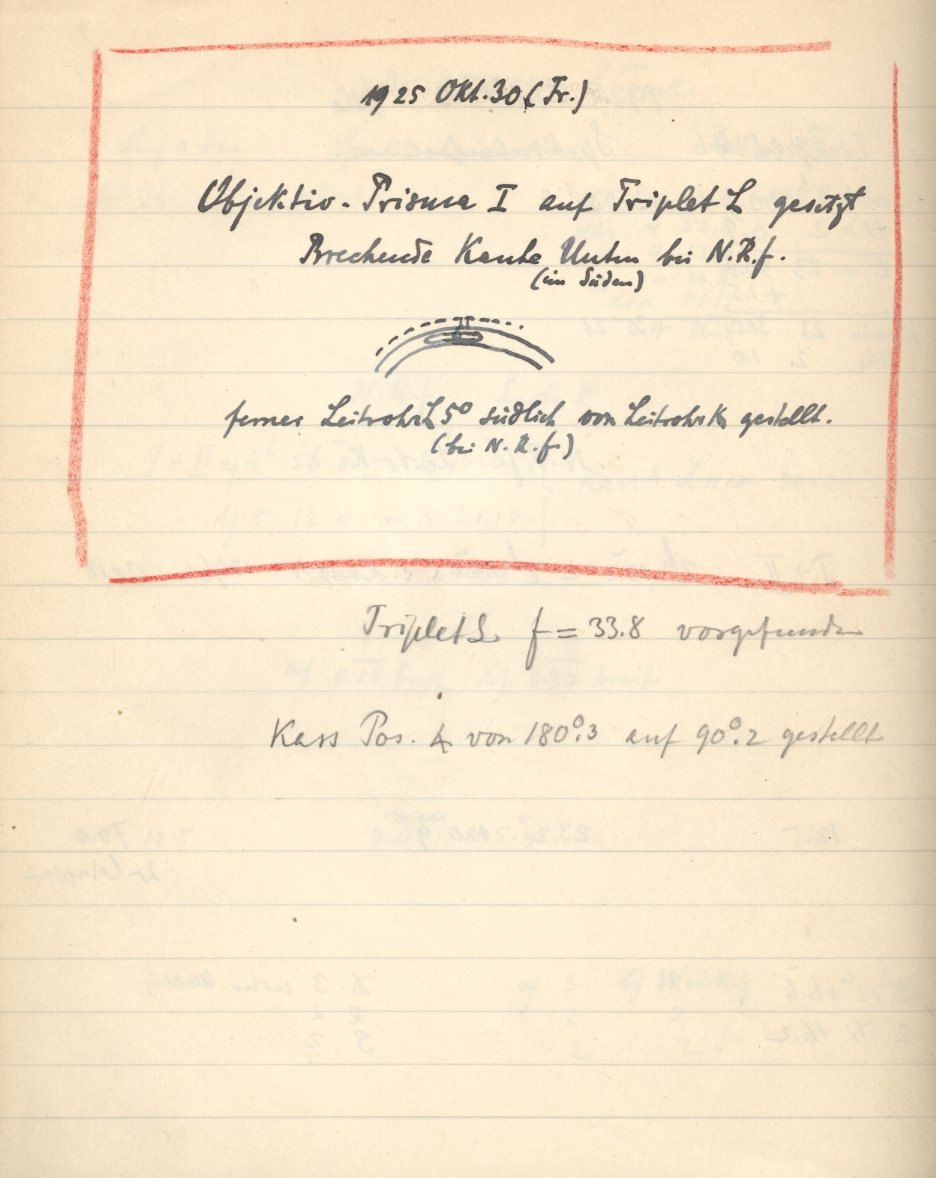 1925 Okt. 30 (Fr.)
Objektiv-Prisma I auf Triplet L gesetzt
Brechende Kante Unten bei N.R.f.
(im Süden)
ferner Leitrohr L 5° südlich von Leitrohr K gestellt.
(bei N.R.f.)
Triplet L f = 33.8 vorgefunden
Kass Pos. ∡ von 180°.3 auf 90°.2 gestellt